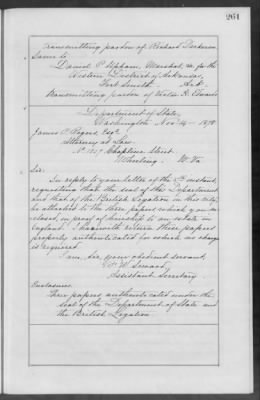 261
Transmitting pardon of Richard Dickerson.
Same to
Daniel P. Upham, Marshal, &c. for the
Western District of Arkansas,
Fort Smith. Ark.
Transmitting pardon of R. Edwards
Department of State,
Washington Nov. 14 - 1878
James P. Rogers, Esqr.
Attorney at Law,
No. 1217 Chapline Street,
Wheeling. W. Va.
Sir:
In reply to your letter of the instant,
requesting that the seal of the Department
and that of the British Legation in this city,
be attached to the three papers which you en-
closed, in proof of heirship to an estate in
England. I herewith return these papers
properly authenticated for which no charge
is required.
I am, Sir, your obedient servant,
F. W. Seward,
Assistant Secretary.
Enclosure.
Three papers authenticated under the
seal of the Department of State and
the British Legation.